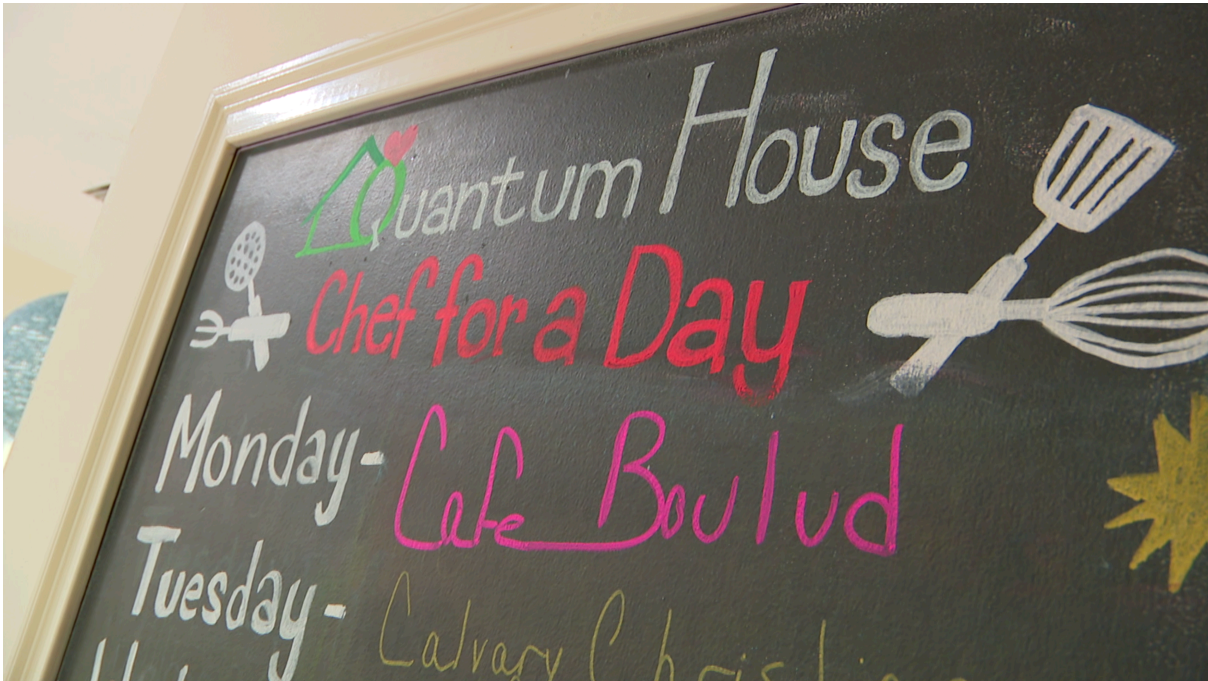 Quantum House
Chef for a Day
Monday- Cafe Boulud
Tuesday- Calvary Christian